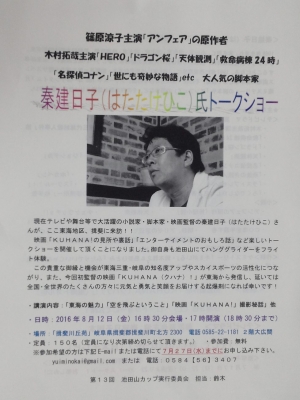 篠原涼子主演「アンフェア」の原作者
木村拓哉主演「HERO」「ドラゴン桜」「天体観測」「救命病棟24時」
「名探偵コナン」「世にも奇妙な物語」etc 大人気の脚本家
秦建日子(はたたけひこ)氏トークショー
現在テレビや舞台等で大活躍の小説家・脚本家・映画監督の秦建日子(はたたけひこ)さ
んが、ここ東海地区、揖斐に来訪!!
映画「KUHANA!の見所や裏話」「エンターテイメントのおもしろ話」など楽しいトー
クショーを開催して頂くことになりました。御自身も池田山にてハンググライダーをフライ
ト体験。
この貴重な御縁と機会が東海三重・岐阜の知名度アップやスカイスポーツの活性化につな
がり、また、今回初監督の映画「KUHANA!(クハナ!)」が東海から発信し、延いては
全国・全世界のたくさんの方々に元気と勇気と笑顔をお届けする起爆剤になれば幸いです!
・講演内容:「東海の魅力」「空を飛ぶということ」「映画「KUHANA!」撮影秘話」他
・日時:2016年8月12日(金)16時30分会場・17時開演(18時30分まで)
・場所:「揖斐川丘苑」岐阜県揖斐郡揖斐川町北方2300 電話 0585-22-1181 2階大広間
・定員:150名(定員になり次第締め切らせて頂きます。) ・参加費:無料
※参加希望の方は下記E-mailまたは電話にて7月27日(水)までにお申し込み下さい。
または 電話 0584[56]3407
第13回 池田山カップ実行委員会 担当:鈴木